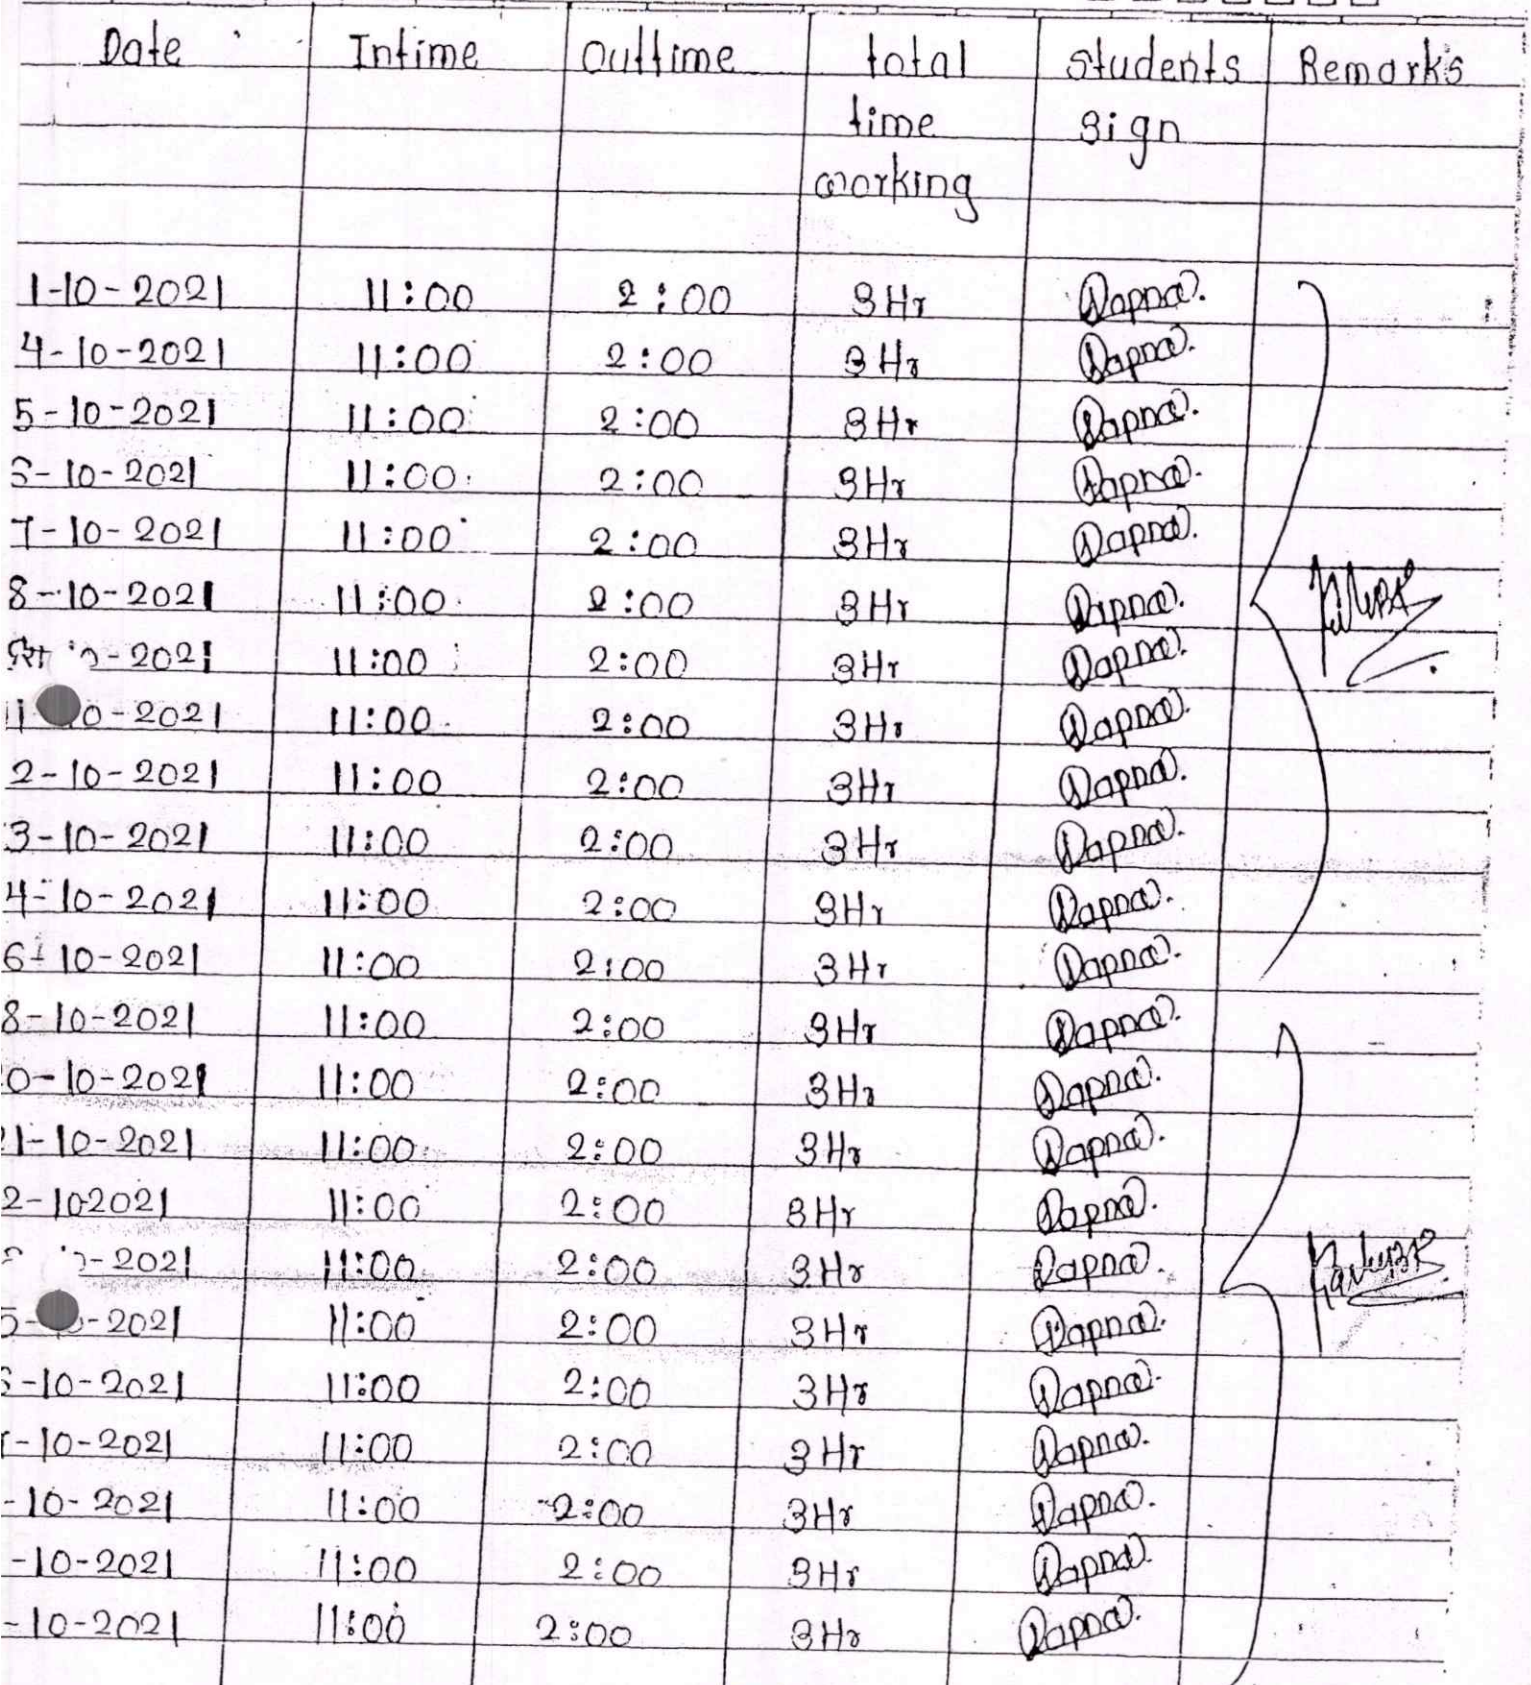 Date Intime Outtime total Students Remarks
time Sign
working
1-10-2021 11:00 2:00 3Hr Sapna.
4-10-2021 11:00 2:00 3Hr Sapna.
5-10-2021 11:00 2:00 3Hr Sapna.
6-10-2021 11:00 2:00 3Hr Sapna.
7-10-2021 11:00 2:00 3Hr Sapna.
8-10-2021 11:00 2:00 3Hr Sapna.
-2021 11:00 2:00 3Hr Sapna.
0-2021 11:00 2:00 3Hr Sapna.
2-10-2021 11:00 2:00 3Hr Sapna.
3-10-2021 11:00 2:00 3Hr Sapna.
4-10-2021 11:00 2:00 3Hr Sapna.
6-10-2021 11:00 2:00 3Hr Sapna.
8-10-2021 11:00 2:00 3Hr Sapna.
0-10-2021 11:00 2:00 3Hr Sapna.
1-10-2021 11:00 2:00 3Hr Sapna.
2-10-2021 11:00 2:00 3Hr Sapna.
-2021 11:00 2:00 3Hr Sapna.
-2021 11:00 2:00 3Hr Sapna.
-10-2021 11:00 2:00 3Hr Sapna.
-10-2021 11:00 2:00 3Hr Sapna.
-10-2021 11:00 2:00 3Hr Sapna.
-10-2021 11:00 2:00 3Hr Sapna.
-10-2021 11:00 2:00 3Hr Sapna.